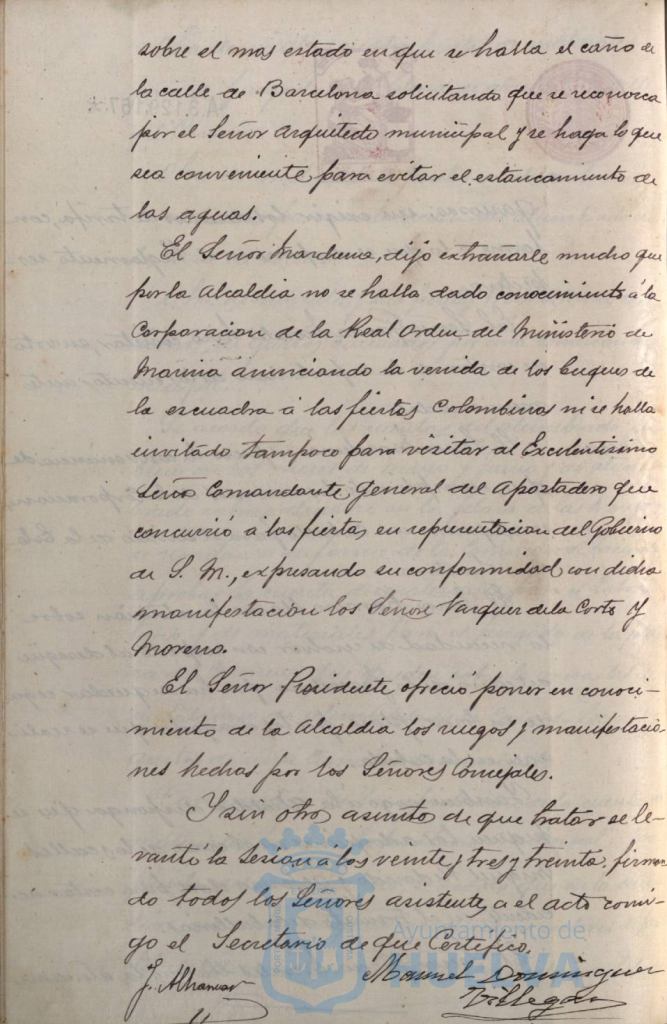 sobre el mas estado en que se halla el caño de
la calle de Barcelona solicitando que se reconozca
por el Señor Arquitecto municipal y se haga lo que
sea conveniente para evitar el estancamiento de
las aguas.
El Señor Marchena, dijo extrañarle mucho que
por la Alcaldia no se halla dado conocimiento á la
Corporacion de la Real Orden del Ministerio de
Marina anunciando la venida de los buques de
la escuadra á las fiestas Colombinas ni se halla
invitado tampoco para visitar al Excelentisimo
Señor Comandante general del Apostadero que
concurrió á las fiestas en representacion del Gobierno
de S. M., expresando su conformidad con dicha
manifestacion los Señores Vazquez de la Corte y
Moreno.
El Señor Presidente ofreció poner en conoci-
miento de la Alcaldia los ruegos y manifestacio-
nes hechas por los Señores Concejales.
Y sin otro asunto de que tratar se le-
vantó la Sesion á las veinte y tres y treinta, firman-
do todos los Señores asistentes a el acto conmi-
go el Secretario de que Certifico.
Ayuntamiento de
HUELVA
Manuel Dominguez
Villegas